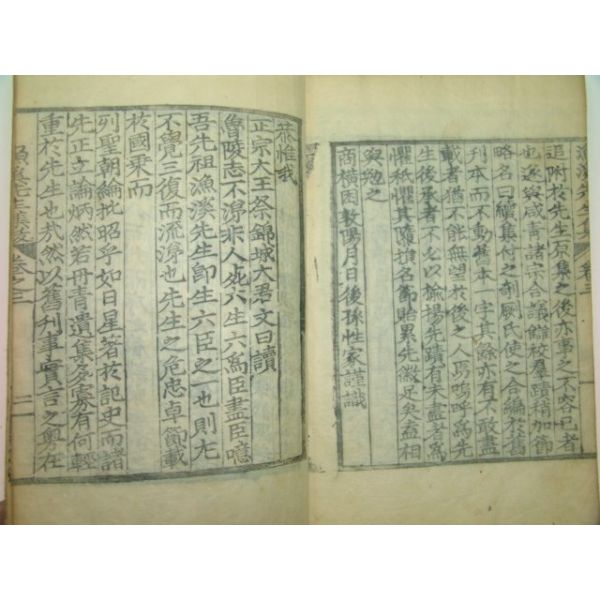 漁溪先生集 卷三
追附於先生原集之後亦事之不容已者
也遂與咸青諸宗合議讎校羣蹟稍加節
略名曰續集付之剞厥氏使之合編於舊
刊本而不動舊本一字其餘亦有不敢盡
載者猶不能無望於後之人焉嗚呼爲先
生後承者不必以揄揚先蹟有未盡者爲
懼秪懼其隳損名節貽累先徽足矣盍相
與勉之
商橫困敦陽月日後孫性家謹識
恭惟我
正宗大王祭錦城大君文曰讀
魯陵志不涕非人死六生六爲臣盡臣噫
吾先祖漁溪先生卽生六臣之一也則尤
不覺三復而流涕也先生之危忠卓節載
於國乘而
列聖朝綸批昭乎如日星著於記史而諸
先正立論炳然若丹青遺集多寡有何輕
重於先生也哉然以舊刊事實言之在
先生集 卷之三 二